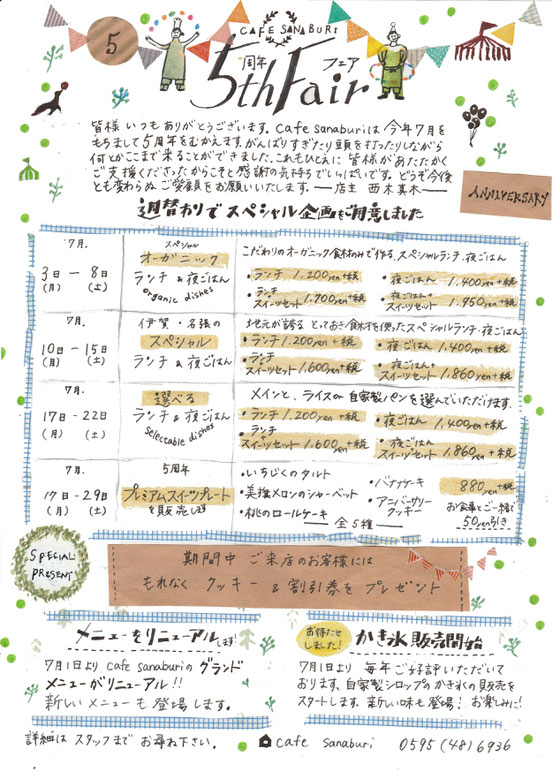 5
CAFE SANABURI
5th Fair
周年 フェア
皆様 いつも ありがとうございます。cafe sanaburiは 今年7月を
もちまして5周年をむかえます。がんばりすぎたり頭を打ったりしながら
何とかここまで来ることができました。これもひとえに 皆様があたたかく
ご支援くださったからこそと感謝の気持ちでいっぱいです。どうぞ今後
とも変わらぬ ご愛顧を お願いいたします。 ー 店主 西木真木 ー
ANNIVERSARY
週替わりで スペシャル企画をご用意しました
7月
3日 ー 8日
(月) (土)
スペシャル
オーガニック
ランチ & 夜ごはん
organic dishes
こだわりのオーガニック食材のみで作る、スペシャルランチ・夜ごはん
・ランチ 1,200yen+税 ・夜ごはん 1,400yen+税
・ランチ スイーツセット 1,700yen+税 ・夜ごはん+ スイーツセット 1,950yen+税
7月
10日 ー 15日
(月) (土)
伊賀・名張の
スペシャル
ランチ & 夜ごはん
地元が誇る とっておき食材を使ったスペシャルランチ・夜ごはん
・ランチ 1,200yen+税 ・夜ごはん 1,400yen+税
・ランチ スイーツセット 1,600yen+税 ・夜ごはん+ スイーツセット 1,860yen+税
7月
17日 - 22日
(月) (土)
選べる
ランチ & 夜ごはん
Selectable dishes
メインと、ライスor自家製パンを選んでいただけます。
・ランチ 1,200yen+税 ・夜ごはん 1,400yen+税
・ランチ スイーツセット 1,600yen+税 ・夜ごはん+ スイーツセット 1,860yen+税
7月
17日 - 29日
(月) (土)
5周年
プレミアムスイーツプレート
を販売します
・いちじくのタルト ・バナナケーキ
・美旗メロンのシャーベット ・アニバーサリークッキー
・桃のロールケーキ ー全5種ー
880yen+税
お食事とご一緒で
50yen引き
SPECIAL
PRESENT
期間中 ご来店のお客様には
もれなく クッキー & 割引券を プレゼント
メニューをリニューアルします!
7月1日より cafe sanaburiの グランド
メニューがリニューアル!!
新しい メニューも 登場します。
お待たせしました!
かき氷 販売開始
7月1日より 毎年ご好評いただいて
おります、自家製シロップのかき氷の販売を
スタートします。新しい味も登場! お楽しみに!
詳細は スタッフまで お尋ね下さい。 cafe sanaburi 0595(48)6936